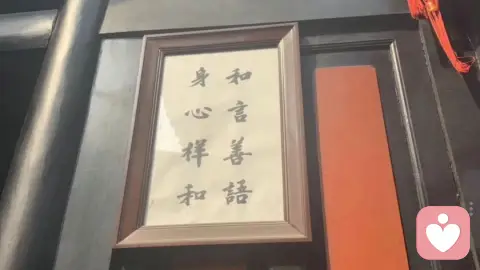 和言善語
身心祥和